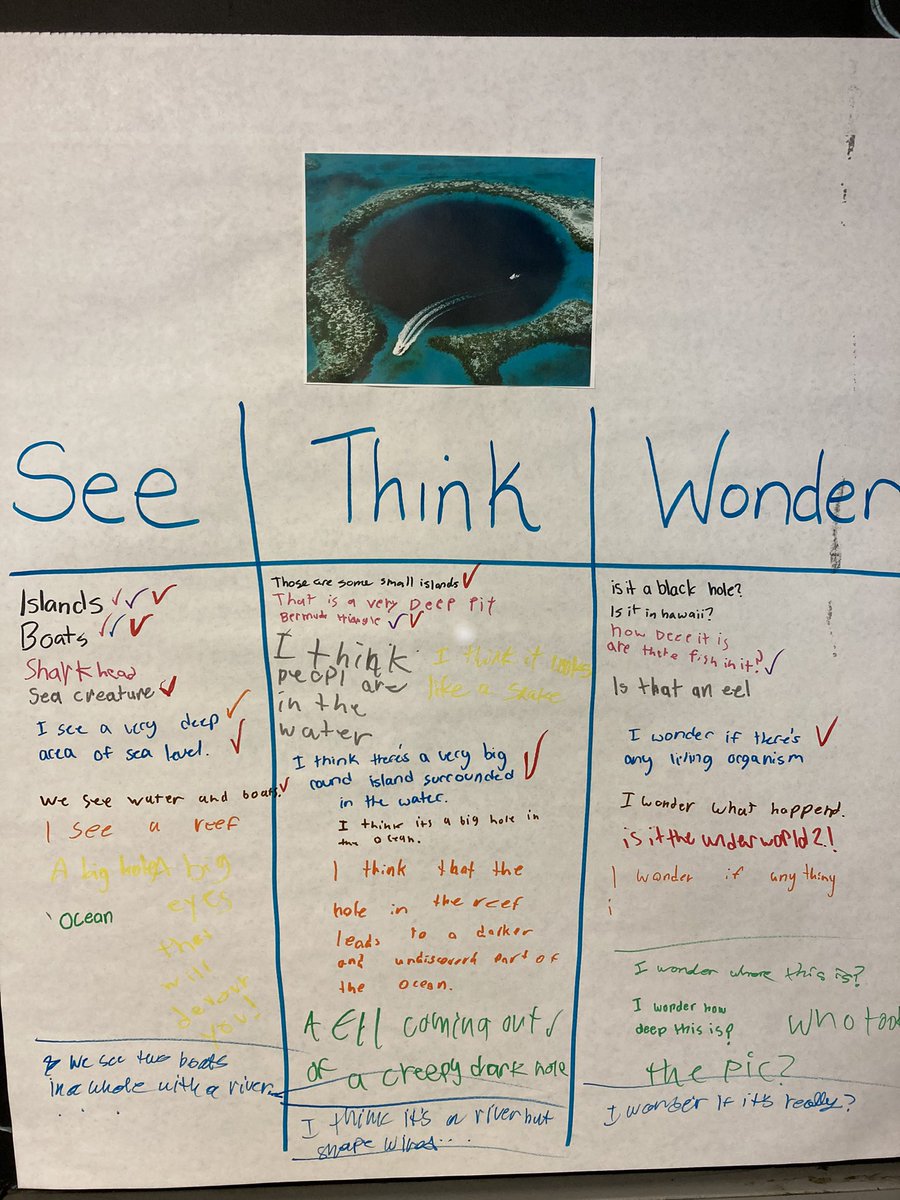 See
Think
Wonder
Islands
Boats
Shark head
Sea creature
I see a very deep
area of sea level.
We see water and boats.
I see a reef
A big hole
A big
eyes
that
will
devour
you!
Ocean
We see two boats
in a whole with a river
Those are some small islands
That is a very Deep Pit
Bermuda triangle
I think
peopl are
in the
water
I think it looks
like a snake
I think there's a very big
round island surrounded
in the water.
I think its a big hole in
the ocean.
I think that the
hole in the reef
leads to a darker
and undiscoverd part of
the ocean.
A Ell coming out
of a creepy dark hole
I think it's a river but
shape
is it a black hole?
Is it in hawaii?
how Deep it is
are there fish in it?
Is that an eel
I wonder if there's
any living organism
I wonder what happend.
is it the underworld?!
I wonder if any thiny
i
I wonder where this is?
I wonder how
deep this is?
who too
the pic?
I wonder if it's really?